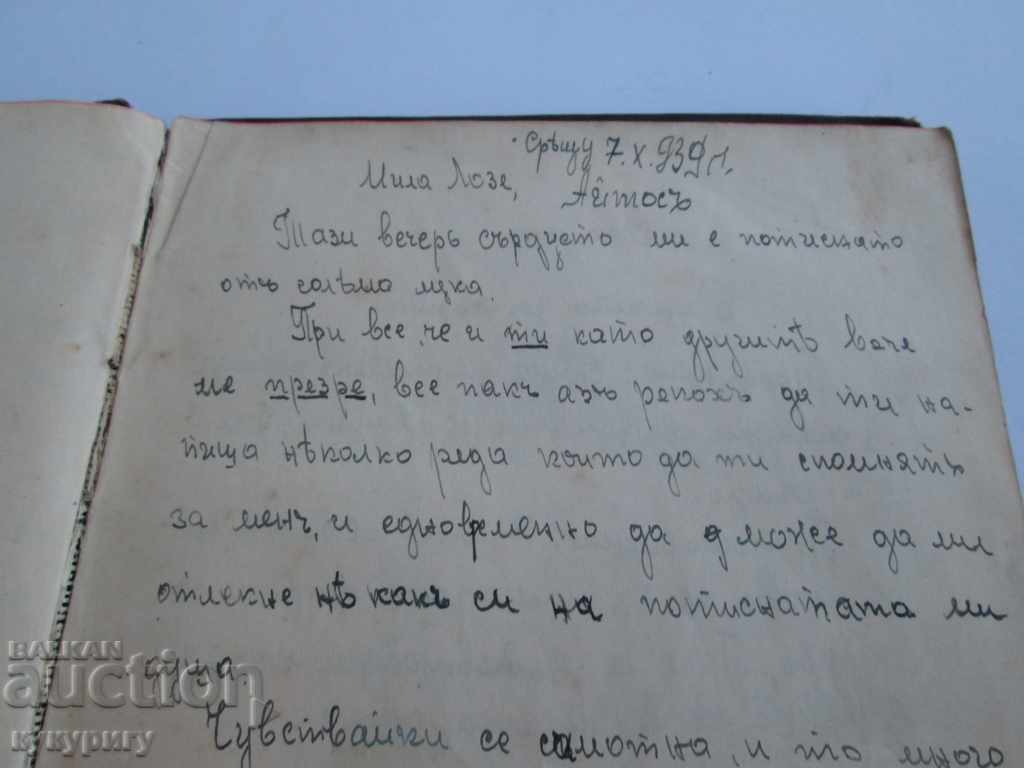 Срѣщу 7.X.939 г.
Мила Лозе, Айтосъ
Тази вечерь сърдцето ми е потиснато
отъ голѣма мѫка.
При все, че и ти като другитѣ вече
ме презре, все пакъ азъ репохъ да ти на-
пиша нѣколко реда които да ти спомнятъ
за менъ, и едновременно да може да ми
отлекне нѣ какъ си на потиснатата ми
душа.
Чувствайки се самотна, и то много
BALKAN
auction
кукуригу